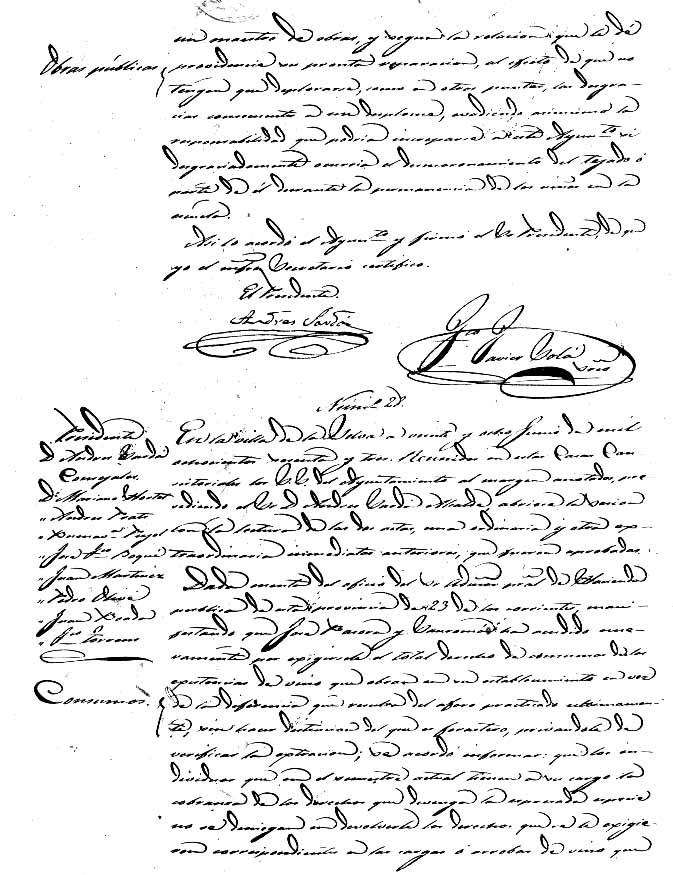 un maestro de obras, y segun la relacion que le dé
Obras públicas
providencia su pronta reparacion, al efecto de que no
tengan que deplorarse, como en otros puntos, las desgra-
cias consecuente a un desplome, evadiendo asimismo la
responsabilidad que podria increparse a este Ayunto si
desgraciadamente ocurria el desmoronamiento del tejado ó
parte de él durante la permanencia de los niños en la
escuela.
Asi lo acordó el Ayunto y firmó el Sr Presidente, de que
yo el infro Secretario certifico.
El Presidente.
Andres Sardá
Javier Solá
Srio
Núm. 28.
Presidente
D. Andres Sardá
Concejales
D. Mariano
" Andres
" Juan Martinez
" Pedro Oliva
" Juan
En la villa de la Selva a veinte y ocho Junio de mil
ochocientos setenta y tres. Reunidos en estas Casas Con-
sistoriales los SS. del Ayuntamiento al margen anotados, pre-
sidiendo el Sr D. Andres Sardá Alcalde, abriose la sesion
con la lectura de las dos actas, una ordinaria y otra ex-
traordinaria inmediatas anteriores, que fueron aprobadas.
Consumos.
Dada cuenta del oficio del Sr Admor pral de Hacienda
publica de esta provincia de 23 de los corrientes, mani-
festando que José y ha acudido nue-
vamente por exigirsele el total derecho de consumo de las
existencias de vino que obran en su establecimiento en vez
de la diferencia que resulta del aforo practicado ultimamen-
te, sin hacer distincion del que es forastero, privandole de
verificar la esportacion; se acordó informar: que los in-
dividuos que en el semestre actual tienen a su cargo la
cobranza de los derechos que devenga la espresada especie
no se deniegan en devolverle los derechos que se le exigie-
ron correspondientes a las cargas ó arrobas de vino que